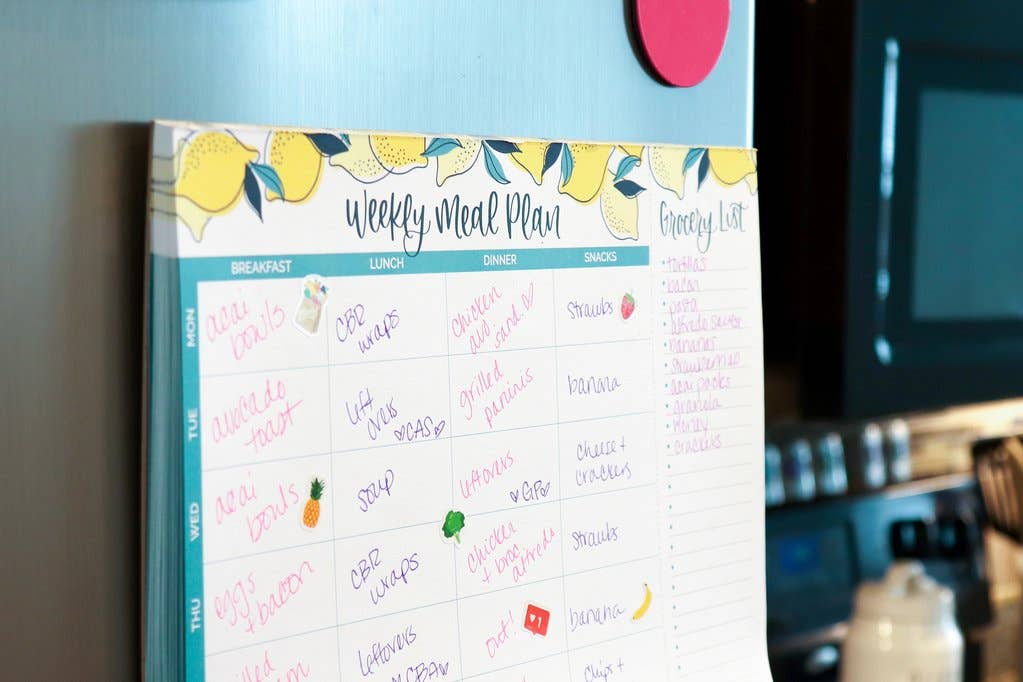 Weekly Meal Plan
Grocery List
BREAKFAST
LUNCH
DINNER
SNACKS
MON
acai
bowls
CBR
wraps
chicken
avo
sand.♡
straubs
TUE
avocado
toast
left
overs
♡CAS♡
grilled
paninis
banana
WED
acai
bowls
soup
leftovers
♡GP♡
cheese +
crackers
THU
eggs
+ bacon
CBR
wraps
chicken
+ broc
alfredo
straubs
leftovers
CBA♡
out!
1
banana
chips +
tortillas
bacon
pasta
alfredo sauce
bananas
strawberries
acai packs
granola
honey
crackers